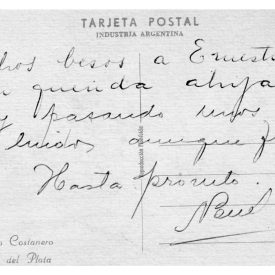 TARJETA POSTAL
INDUSTRIA ARGENTINA
besos a Ernesti
querida ahija
y pasando unos
lindos aunque f
Hasta pronto.
Costanero
del Plata